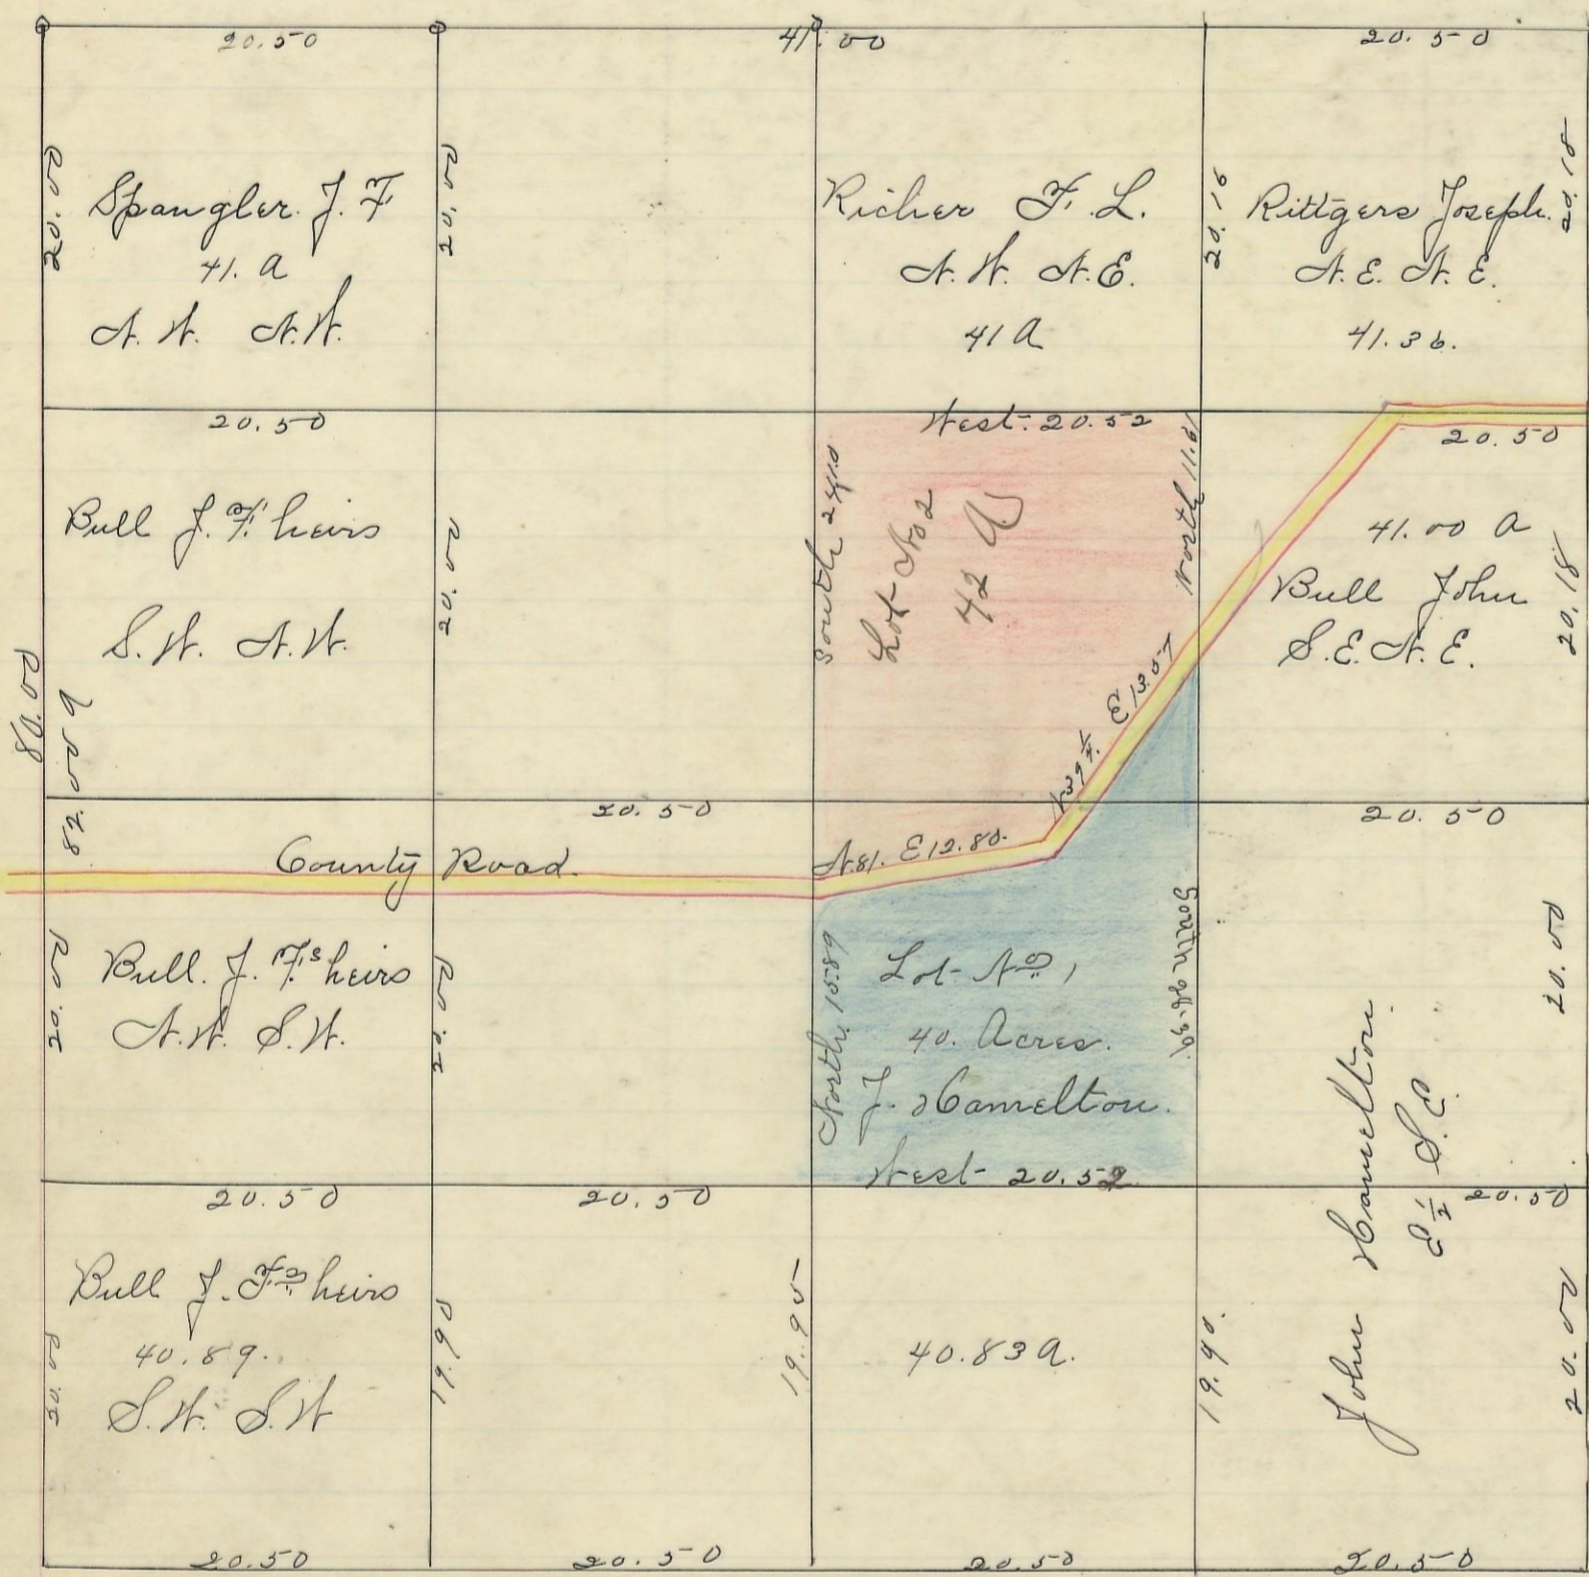 20.50
41.00
20.50
20.00
Spangler. J. F
41. A
N. W. N. W.
20.00
Richer F. L.
N. W. N.E.
41 A
20.16
Rittgers Joseph.
N. E. N. E.
41.36.
20.18
20.50
West. 20.52
20.50
Bull J. F. heirs
S. W. N. W.
20.00
South 24.10
Lot No 2
42 A
North 11.61
41.00 A
Bull John
S. E. N. E.
20.18
80.00
20.50
N 39 1/4. E 13.07
20.50
County Road.
N. 81. E 12.80.
20.00
Bull. J. F's heirs
N. W. S. W.
20.00
North. 15.89
Lot No 1
40. Acres.
J. Hamelton.
West 20.52
20.00
John Hamelton.
E 1/2 S. E.
20.50
20.50
20.50
20.00
Bull J. Fs heirs
40.89.
S. W. S. W
19.95
40.83 A.
19.90.
20.00
20.50
20.50
20.50
20.50